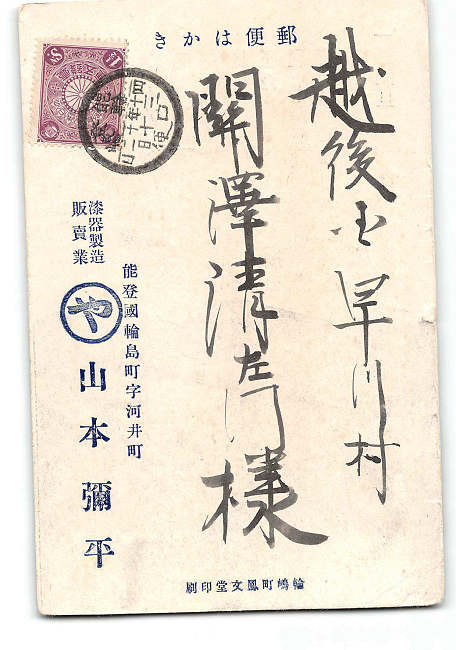 郵便はかき
越後国 早川村
關澤清左門様
漆器製造
販賣業
や
能登國輪島町字河井町
山本彌平
輪嶋町鳳文堂印刷